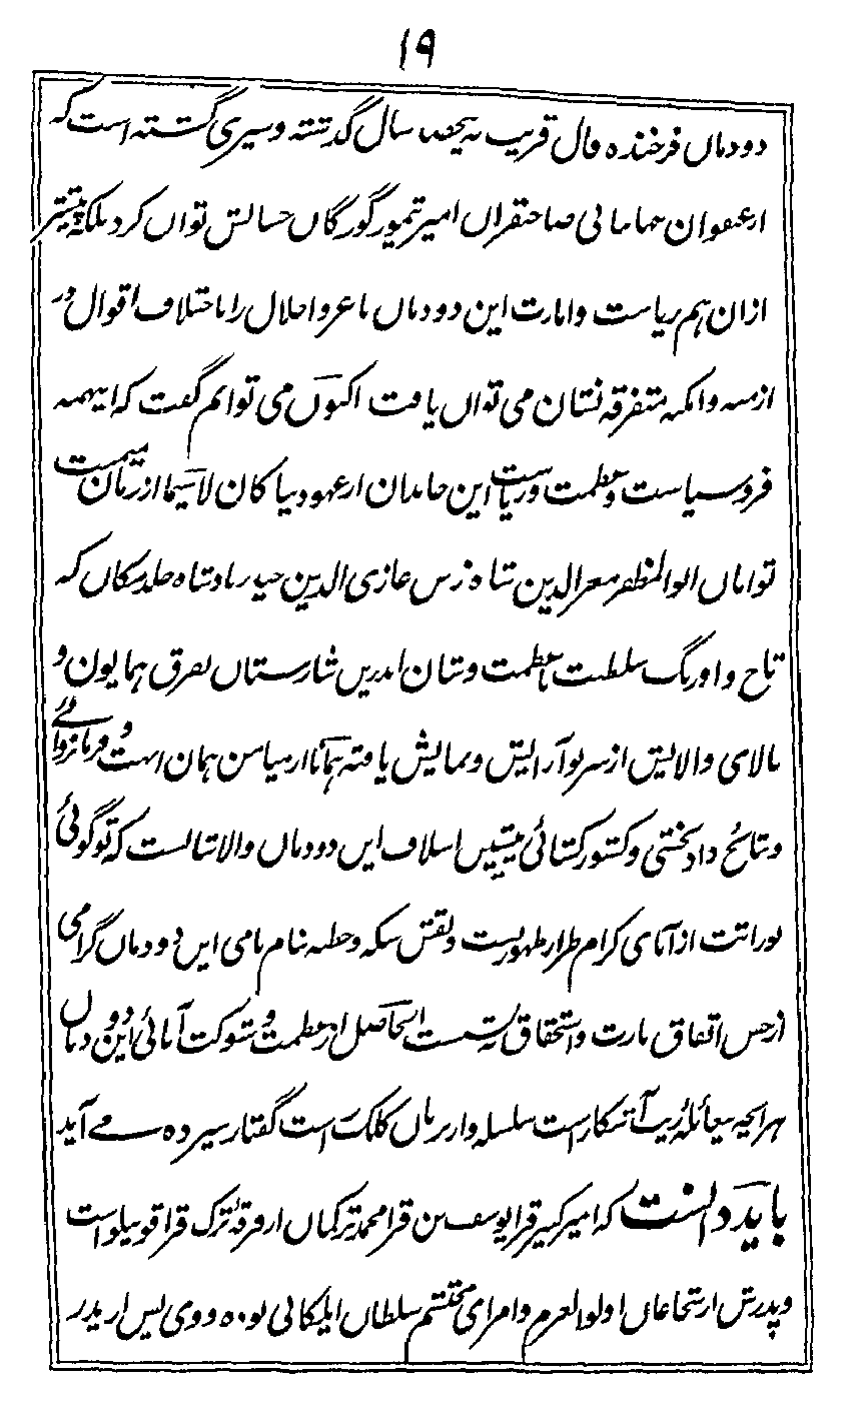 ۱۹
دودمان فرخنده فال قریب به پنجصد سال گذشته و سپری گشته است که
از عنفوان جهانبانی صاحبقران امیر تیمور گورگان حسابش توان کرد بلکه پیشتر
ازان هم ریاست و امارت این دودمان با عز و اجلال را باختلاف اقوال در
ازمنه و امکنه متفرقه نشان می توان یافت اکنون می توانم گفت که اینهمه
فر و سیاست و عظمت و ریاست این خاندان از عهود نیاکان لاسیما از زمان میمنت
توامان ابوالمظفر معزالدین شاه زمن غازی الدین حیدر بادشاه خلد مکان که
تاج و اورنگ سلطنت با عظمت و شان اندرین شارستان بفرق همایون و
بالای والایش از سر نو آرایش و نمایش یافته همانا از میامن همان است و فرمانروائے
و نتائج دادبخشی و کشورکشائی پیشین اسلاف این دودمان والاشانست که توگوئی
بوراثت از آبای کرام طراز ظهور بست و نقش سکه و خطبه بنام نامی این دودمان گرامی
از حسن اتفاق بارث و استحقاق نشست الحاصل از عظمت و شوکت آبائی این دودمان
هرانچه بیعائله ریب آشکار است سلسله وار بزبان کلک راست گفتار سپرده مے آید
باید دانست که امیر کبیر قرا یوسف بن قرا محمد ترکمان از فرقه ترک قرا قوینلو است
و پدرش از شجاعان اولوالعزم و امرای محتشم سلطان ایلکانی بوده و وی پس از پدر